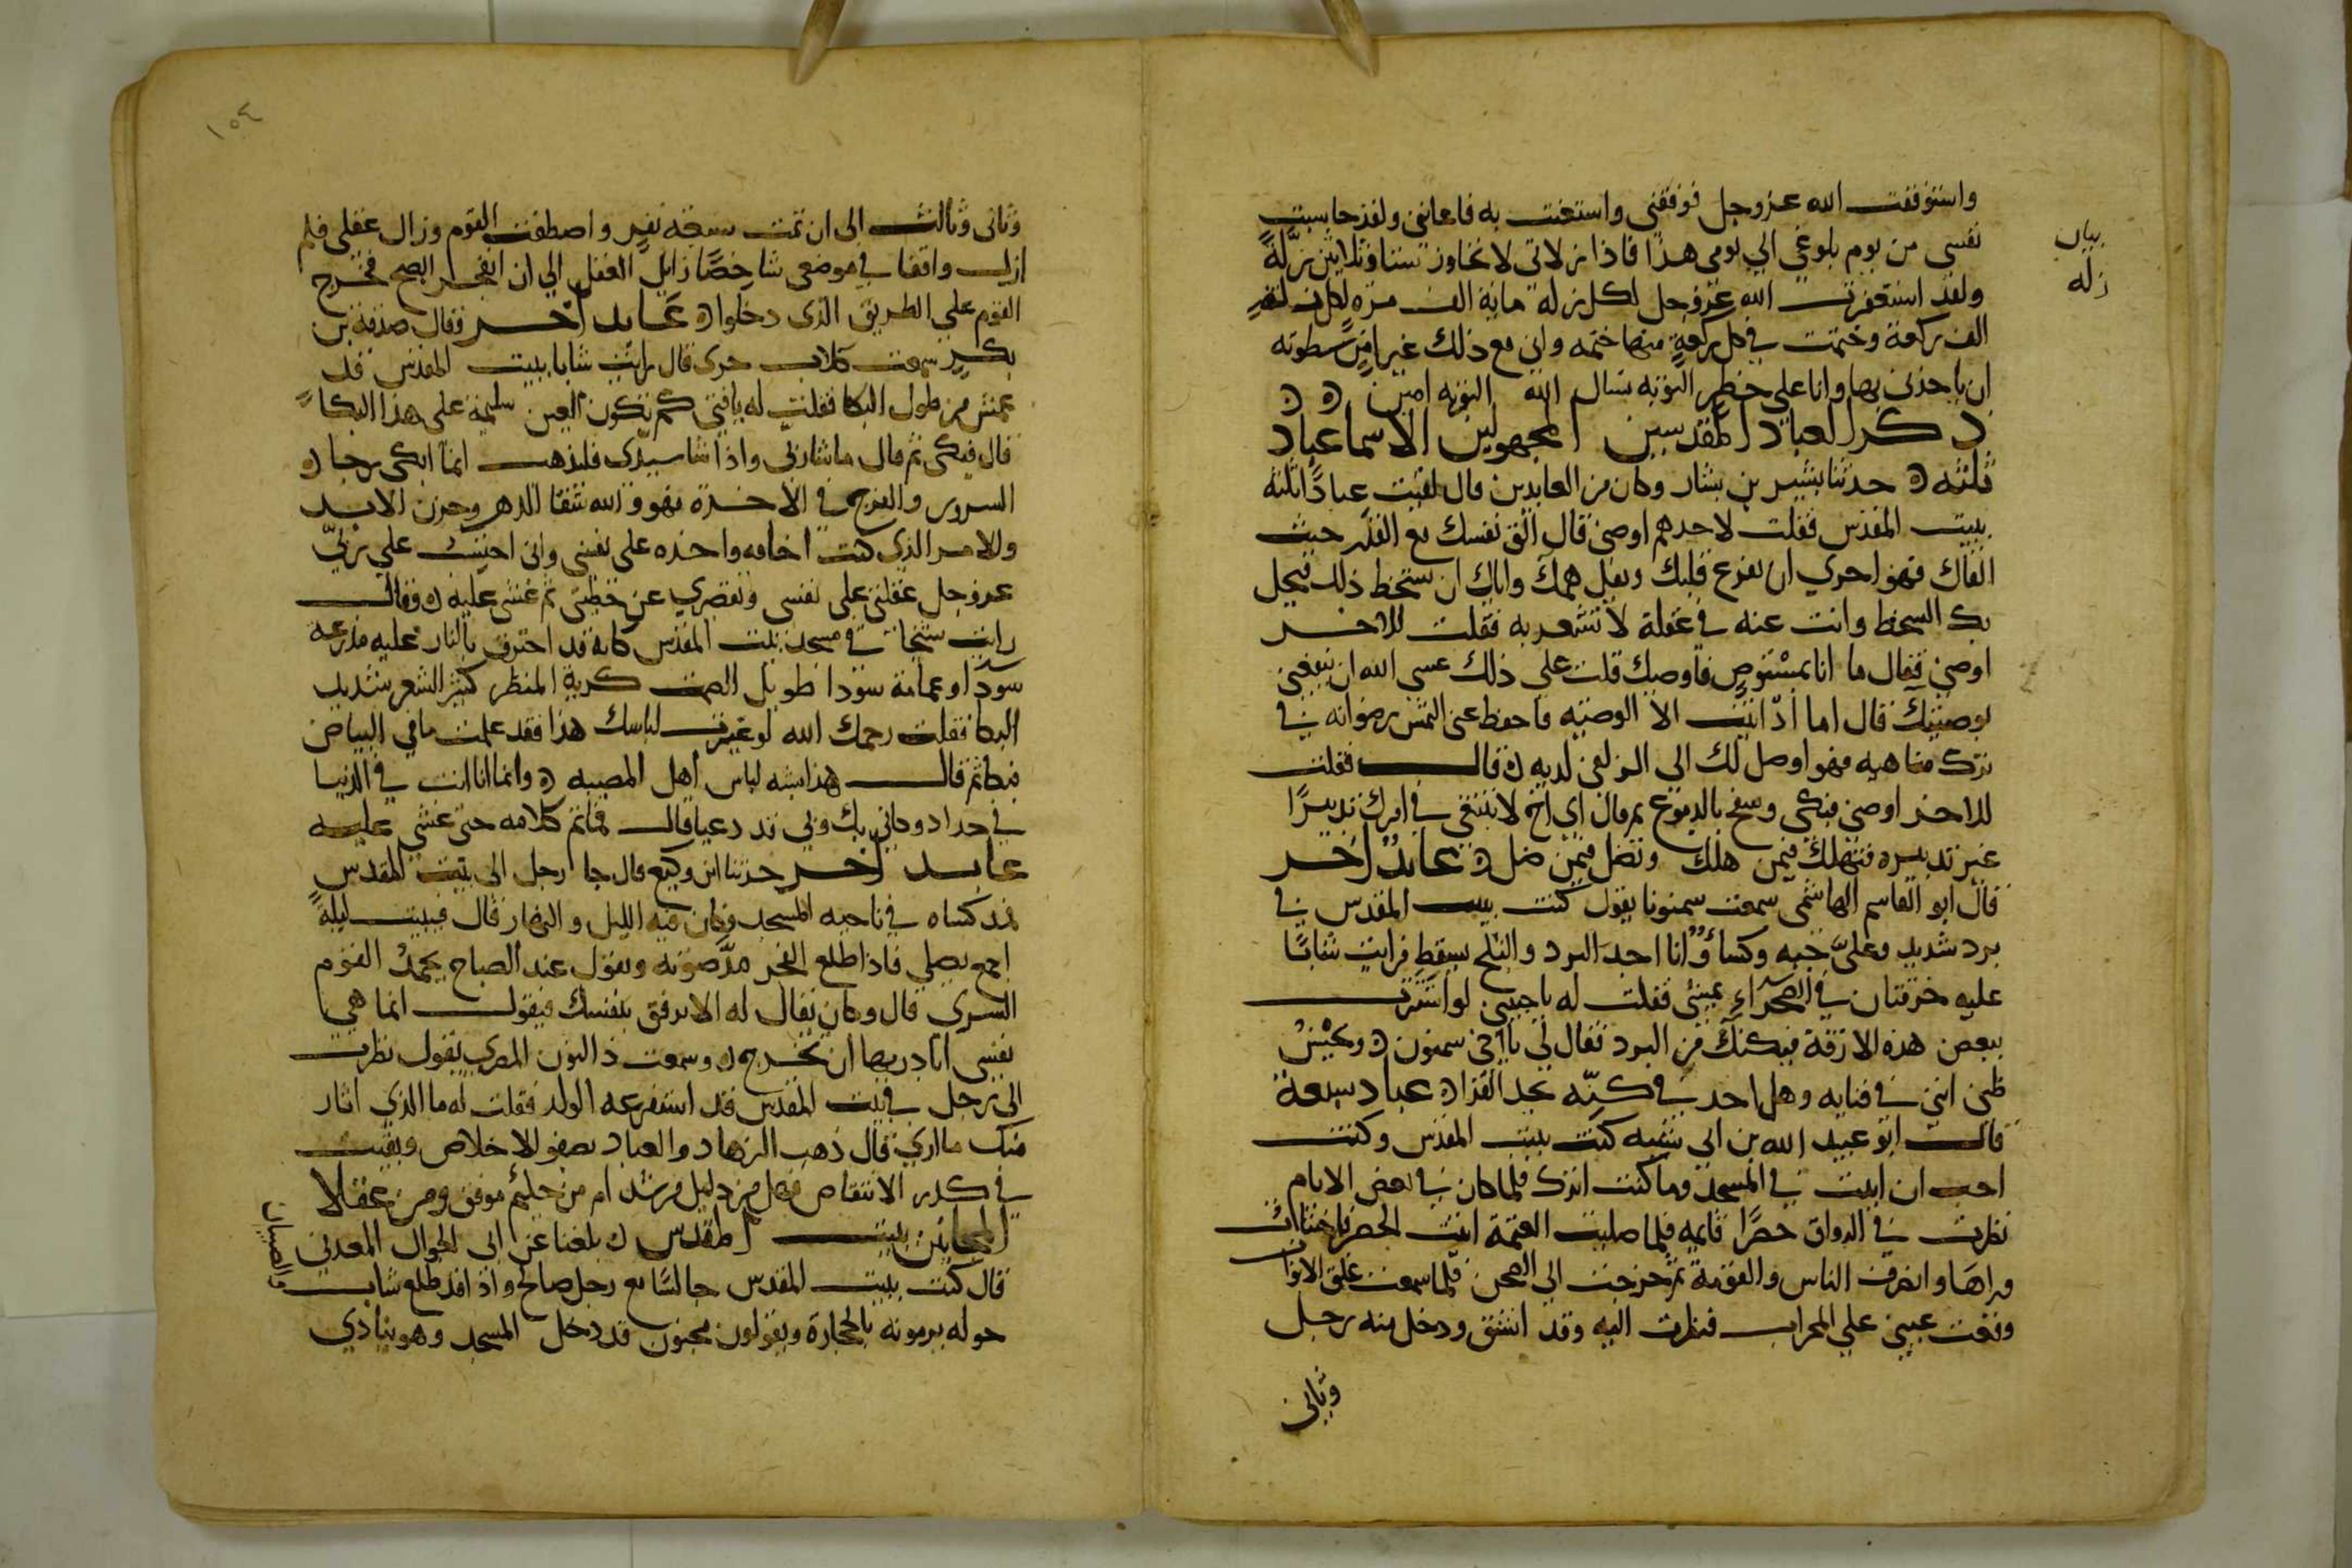 واستوفقت الله عز وجل فوفقني واستعنت به فاعانني ولقد حاسبت
نفسي من يوم بلوغي الي يومي هذا فاذا زلاتي لا تجاوز ستا وثلاثين زلة
بيان
زله
ولقد استغفرت الله عز وجل لكل زلة ماية الف مرة
الف ركعة وختمت في كل ركعة منها ختمه واني مع ذلك غير امن سطوته
ان ياخذني بها وانا علي خطر التوبه نسال الله التوبه امين
ذكر العباد المقدسين المجهولين الاسما عباد
ثلثه حدثنا بشير بن بشار وكان من العابدين قال لقيت عبادا ثلثه
ببيت المقدس فقلت لاحدهم اوصني قال الق نفسك مع القدر حيث
القاك فهو احري ان يفرغ قلبك ويقل همك واياك ان تسخط ذلك فيحل
بك السخط وانت عنه في غفلة لا تشعر به فقلت للاخر
اوصني فقال ما انا بمستوص فاوصيك قلت علي ذلك عسي الله ان ينفعني
بوصيتك قال اما اذ ابيت الا الوصيه فاحفظ عني التمس رضوانه في
ترك مناهيه فهو اوصل لك الي الزلفي لديه قال فقلت
للاخر اوصني فبكي وسفح بالدموع ثم قال اي اخ لا تبتغي في امرك تدبيرا
غير تدبيره فتهلك فيمن هلك وتضل فيمن ضل عابد اخر
قال ابو القاسم الهاشمي سمعت سمنونا يقول كنت ببيت المقدس في
برد شديد وعلي جبه وكساؤ وانا اجد البرد والثلج يسقط فرايت شابا
عليه خرقتان في الصحراء يمشي فقلت له يا حبيبي لو استترت
ببعض هذه الاروقة فيكنك من البرد فقال لي يا اخي سمنون ويحسن
ظني انني في فنايه وهل احد في كنه يجد القرا عباد سبعة
قال ابو عبيد الله بن ابي شيبه كنت ببيت المقدس وكنت
احب ان ابيت في المسجد وما كنت اترك فلما كان في بعض الايام
نظرت في الرواق حصرا قايمه فلما صليت العتمة اتيت الحصر فاختبات
وراها وانصرف الناس والقومة ثم خرجت الي الصحن فلما سمعت غلق الابواب
وقعت عيني علي المحراب فنظرت اليه وقد انشق ودخل منه رجل
وثاني
١٥٤
وثاني وثالث الي ان تمت سبعه نفر واصطفت القوم وزال عقلي فلم
ازل واقفا في موضعي شاخصا زايل العقل الي ان انفجر الصبح فخرج
القوم علي الطريق الذي دخلوا عابد اخر وقال صدقه بن
بكر سمعت كلاب حري قال رايت شابا ببيت المقدس قد
عمش من طول البكا فقلت له يا فتي كم تكون العين سليمة علي هذا البكا
قال فبكي ثم قال ما شا ربي واذا شا سيدي فلتذهب انما ابكي رجا
السرور والفرج في الاخرة فهو والله شقا الدهر وحزن الابد
وللامر الذي كنت اخافه واحذره علي نفسي واني احتسب علي ربي
عز وجل غفلتي علي نفسي وتقصيري عن حظي ثم غشي عليه وقال
رايت شيخا في مسجد بيت المقدس كانه قد احترق بالنار عليه مدرعه
سودا وعمامة سودا طويل الصمت كريه المنظر كثير الشعر شديد
البكا فقلت رحمك الله لو غيرت لباسك هذا فقد علمت ما في البياض
فبكا ثم قال هذا اشبه لباس اهل المصيبه وانما انا انت في الدنيا
في حداد وكاني بك وبي قد دعينا قال فما تم كلامه حتي غشي عليه
عابد اخر حدثنا ابن وكيع قال جا رجل الي بيت المقدس
فمد كساه في ناحيه المسجد وكان فيه الليل والنهار قال فبيت ليلة
اجمع يصلي فاذا طلع الفجر مد صوته ويقول عند الصباح يحمد القوم
السري قال وكان يقال له الا ترفق بنفسك فيقول انما هي
نفسي ابادر بها ان تخرج وسمعت ذا النون المصري يقول نظرت
الي رجل في بيت المقدس قد استفرغه الوله فقلت له ما الذي اثار
منك ما اري قال ذهب الزهاد والعباد بصفو الاخلاص وبقيت
في كدر الانتقاص فهل من دليل مرشد ام من حكيم موفق ومن عقلا
المجانين ببيت المقدس بلغنا عن ابي الجوال المغربي
قال كنت ببيت المقدس جالسا مع رجل صالح واذا قد طلع شاب
والصبيان
حوله يرمونه بالحجارة ويقولون مجنون قد دخل المسجد وهو ينادي